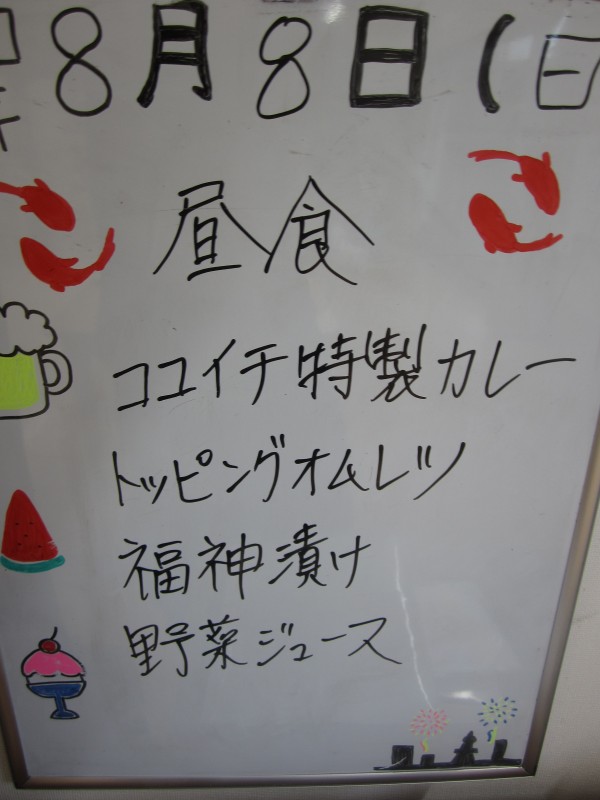 8月8日(日
昼食
ココイチ特製カレー
トッピングオムレツ
福神漬け
野菜ジュース